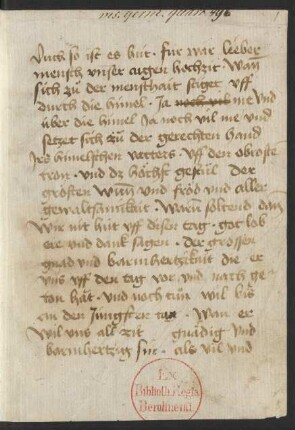 ms. germ. quart. 492
Auch so ist es hüt · für war lieber
mensch vnser augen hochzit · wan
sich zu der menschait stiget vff
durch die himel · Ja noch vil me vnd
über die himel Ja noch vil me vnd
setzet sich zu der gerechten hand
Ires himelschen vatters · vff den obroste
tron · vnd dz höchst gestül der
grösten wunn vnd fröd vnd aller
gewaltsamkait · warum soltend dan
wir nit hüt vff disen tag · got lob
ere vnd dank sagen · der grossen
gnad vnd barmhertzikait die er
vns vff den tag vor vnd nach ge
ton hat · vnd noch tun wil bis
an den Jungsten tag · wan er
wil vns all zit gnädig vnd
barmhertzig sin · als vil vnd
Ex
Biblioth. Regia
Berolinenſi.